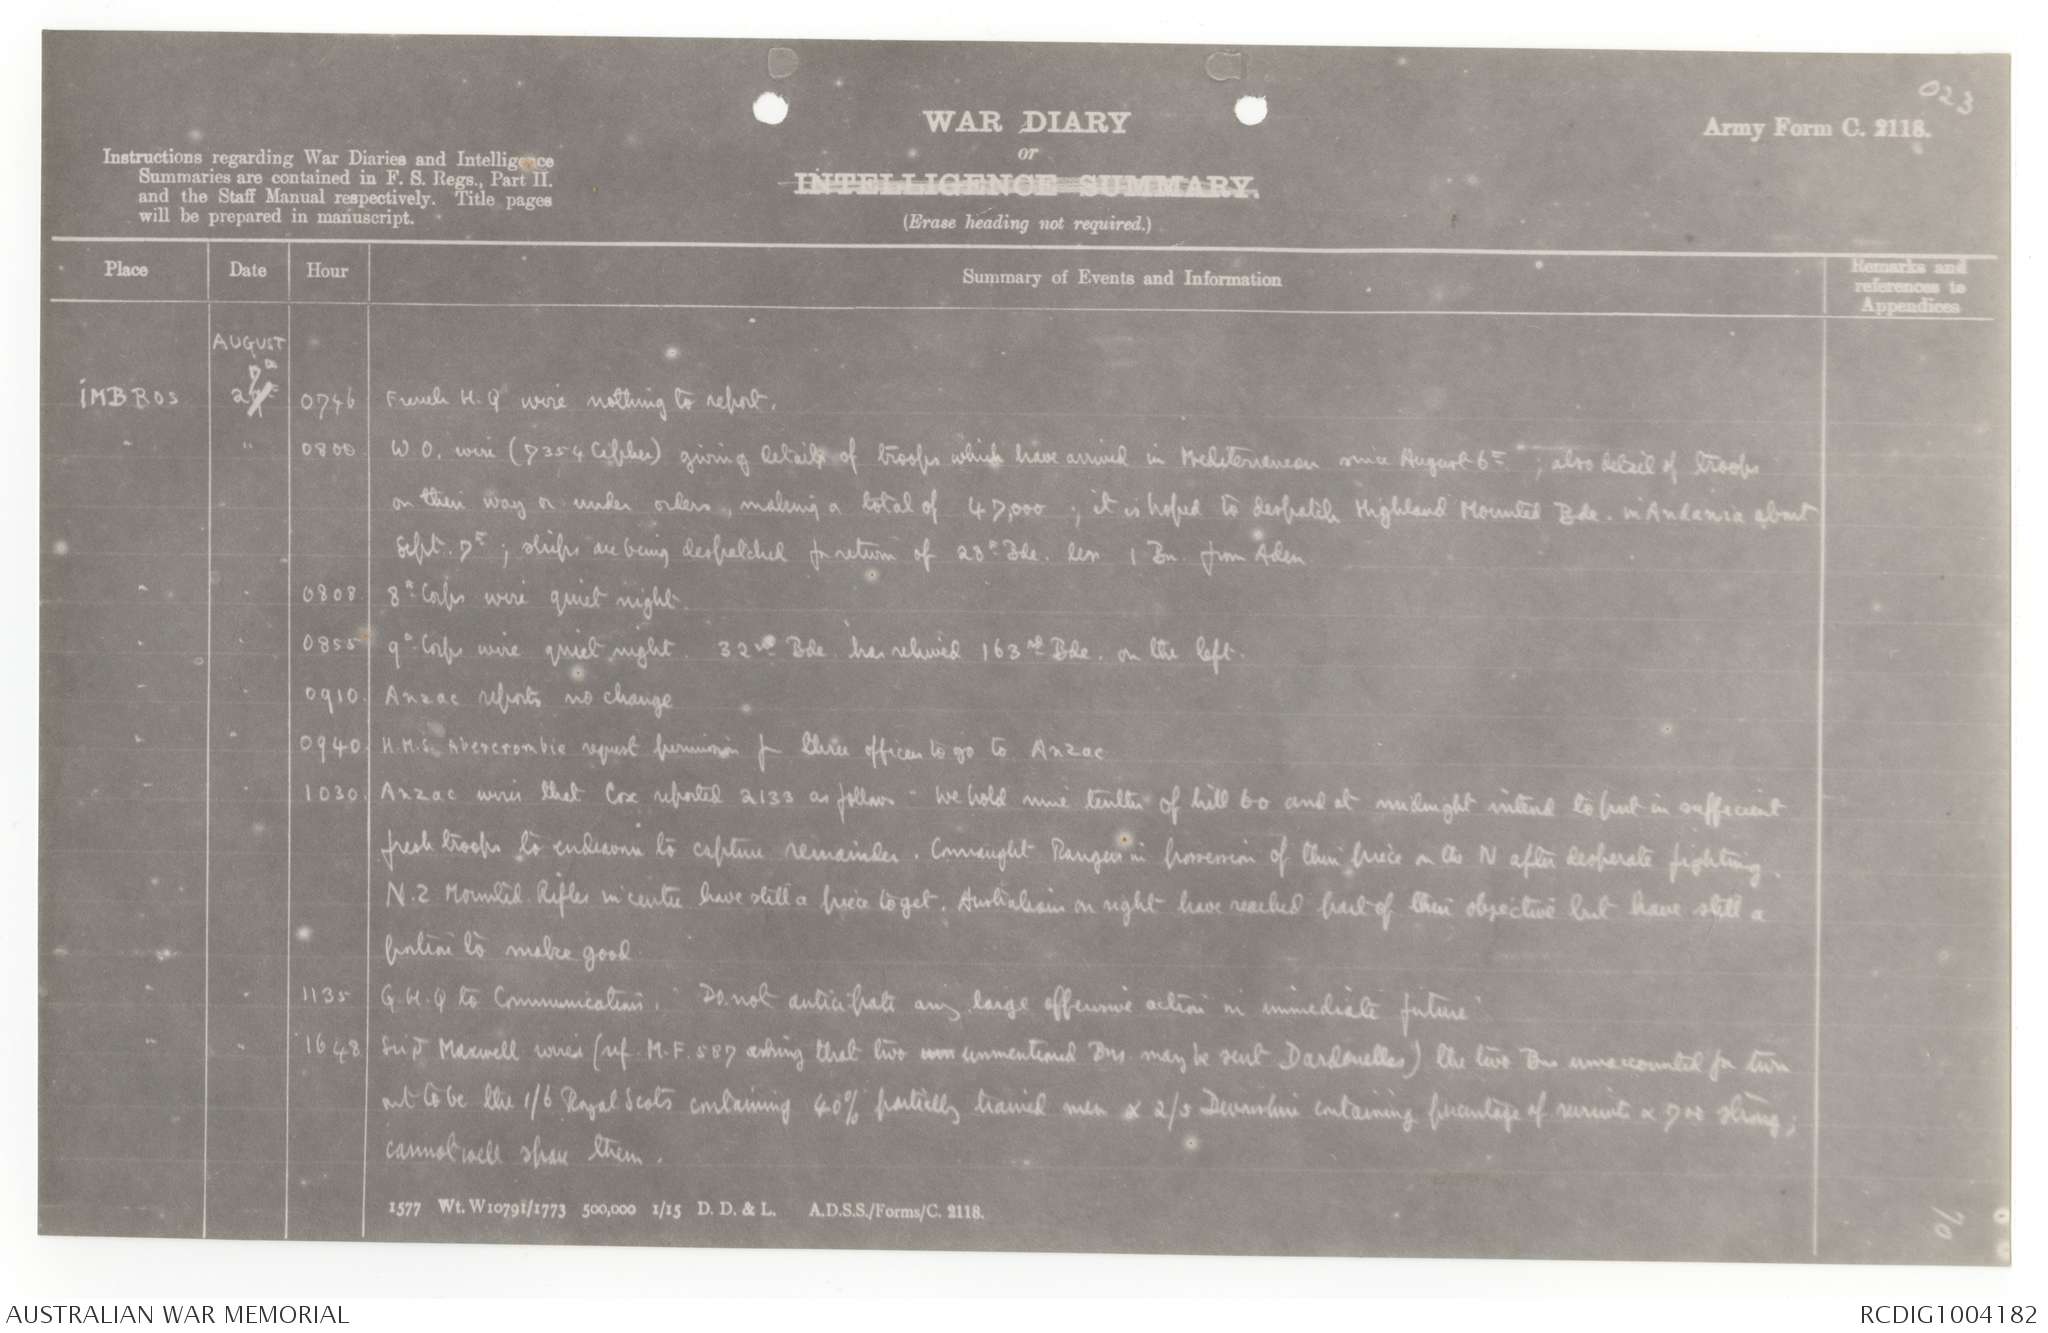 023
WAR DIARY
or
INTELLIGENCE SUMMARY.
(Erase heading not required.)
Army Form C. 2118.
Instructions regarding War Diaries and Intelligence
Summaries are contained in F. S. Regs., Part II.
and the Staff Manual respectively. Title pages
will be prepared in manuscript.
Place Date Hour Summary of Events and Information Remarks and references to Appendices
AUGUST
IMBROS 28th 0746 French H.Q wire nothing to report.
" " 0800 W O. wire (7354 Cipher) giving details of troops which have arrived in Mediterranean since August 6th; also detail of troops
on their way or under orders, making a total of 47,000; it is hoped to despatch Highland Mounted Bde. in Andania about
Sept. 7th; ships are being despatched for return of 28th Bde. less 1 Bn. from Aden
" " 0808. 8th Corps wire quiet night.
" " 0855 9th Corps wire quiet night. 32nd Bde. has relieved 163rd Bde. on the left.
" " 0910. Anzac reports no change
" " 0940 H.M.S. Abercrombie request permission for three officers to go to Anzac
" " 1030. Anzac wires that Cox reported 2133 as follows "We hold nine tenths of hill 60 and at midnight intend to put in sufficient
fresh troops to endeavour to capture remainder. Connaught Rangers in possession of their piece on the N after desperate fighting.
N.Z Mounted Rifles in centre have still a piece to get. Australians on right have reached part of their objective but have still a
portion to make good
" " 1135 G.H.Q to Communications. "Do not anticipate any large offensive action in immediate future"
" " 1648 Maxwell wires (ref. M.F. 587 asking that two unmentioned Bns may be sent Dardanelles) the two Bns unaccounted for turn
out to be the 1/6 Royal Scots containing 40% partially trained men & 2/5 Devonshire containing percentage of recruits & 700 strong;
cannot well spare them.
1577 Wt. W10791/1773 500,000 1/15 D. D. & L. A.D.S.S./Forms/C. 2118.
70
AUSTRALIAN WAR MEMORIAL
RCDIG1004182